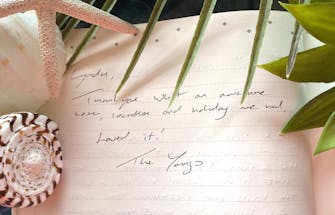 Thankyou. What an awesome
home, location and holiday we had.
Loved it!
The Youngs